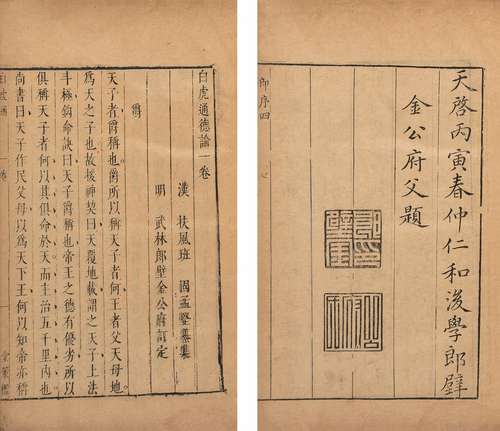 天啓丙寅春仲仁和後學郎壁
金公府父題
郎序四
白虎通德論一卷
漢 扶風班 固孟堅纂集
明 武林郎壁金公府訂定
爵
天子者爵稱也爵所以稱天子者何王者父天母地
為天之子也故援神契曰天覆地載謂之天子上法
斗極鉤命訣曰天子爵稱也帝王之德有優劣所以
俱稱天子者何以其俱命於天而主治五千里內也
尚書曰天子作民父母以為天下王何以知帝亦稱
一卷